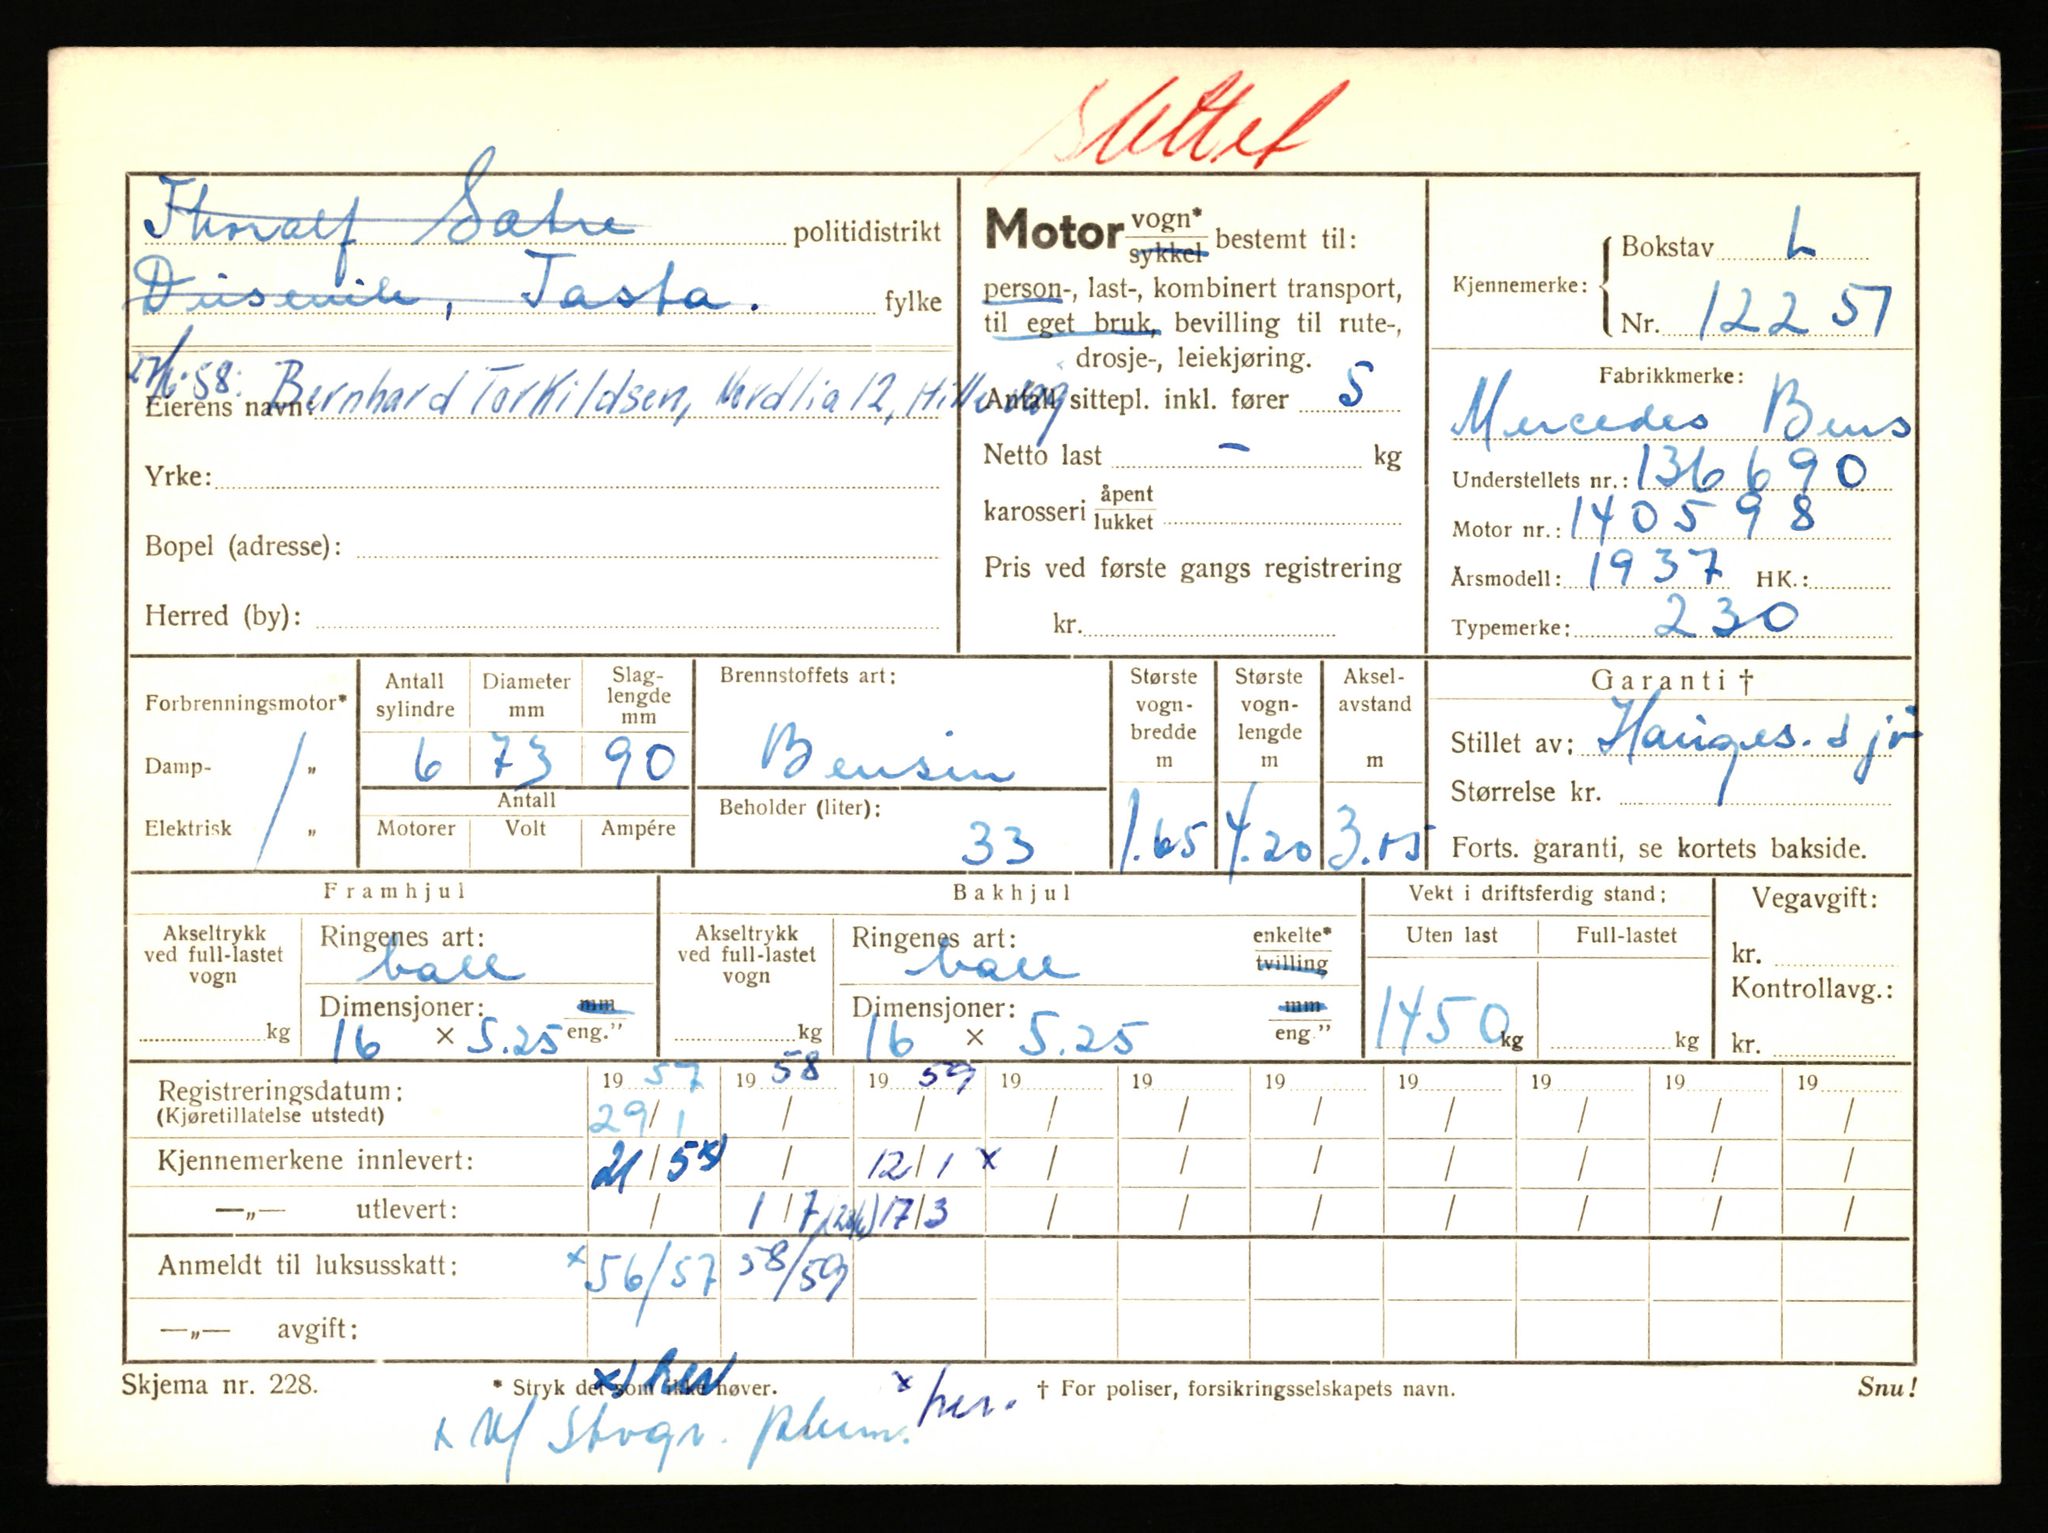 slettet
Thoralf Sætre politidistrikt
Tasta. fylke
58: Bernhard Torkildsen, Nordlia 12, Hillevåg
Eierens navn:
Yrke:
Bopel (adresse):
Herred (by):
Motor vogn* / sykkel bestemt til:
person-, last-, kombinert transport,
til eget bruk, bevilling til rute-,
drosje-, leiekjøring.
Antall sittepl. inkl. fører 5
Netto last – kg
karosseri åpent / lukket
Pris ved første gangs registrering
kr.
Kjennemerke: { Bokstav L
Nr. 12251
Fabrikkmerke:
Mercedes Bens
Understellets nr.: 136690
Motor nr.: 140598
Årsmodell: 1937 HK.:
Typemerke: 230
Forbrenningsmotor*
Damp- / „
Elektrisk / „
Antall sylindre 6
Diameter mm 73
Slaglengde mm 90
Antall
Motorer Volt Ampére
Brennstoffets art:
Bensin
Beholder (liter):
33
Største vogn-bredde m 1.65
Største vogn-lengde m 4.20
Aksel-avstand m 3.05
Garanti †
Stillet av: Hauges. sjø
Størrelse kr.
Forts. garanti, se kortets bakside.
Framhjul
Akseltrykk ved full-lastet vogn kg
Ringenes art:
ball
Dimensjoner: mm / eng.”
16 × 5.25
Bakhjul
Akseltrykk ved full-lastet vogn kg
Ringenes art: enkelte* / tvilling
ball
Dimensjoner: mm / eng.”
16 × 5.25
Vekt i driftsferdig stand:
Uten last Full-lastet
1450 kg kg
Vegavgift:
kr.
Kontrollavg.:
kr.
Registreringsdatum: 1957 1958 1959 19 19 19 19 19 19 19
(Kjøretillatelse utstedt) 29/1 / / / / / / / / /
Kjennemerkene innlevert: 21/5 x) / 12/1 x / / / / / / /
—„— utlevert: / 1/7 17/3 / / / / / / /
Anmeldt til luksusskatt: x 56/57 58/59
—„— avgift:
Skjema nr. 228. * Stryk det som ikke høver. † For poliser, forsikringsselskapets navn. Snu!
x) her x her.
x